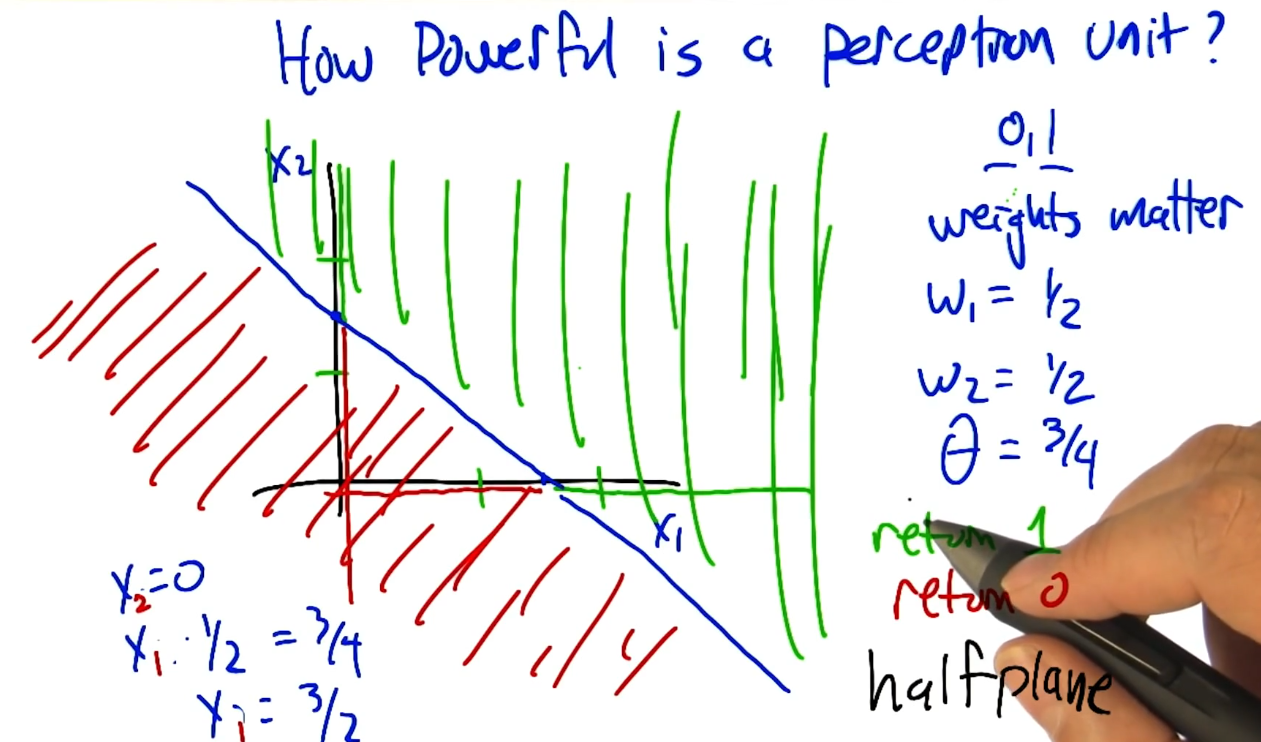 How Powerful is a perceptron unit?
X2
0,1
weights matter
W1 = 1/2
W2 = 1/2
θ = 3/4
X1
return 1
return 0
halfplane
X2=0
X1 · 1/2 = 3/4
X1 = 3/2